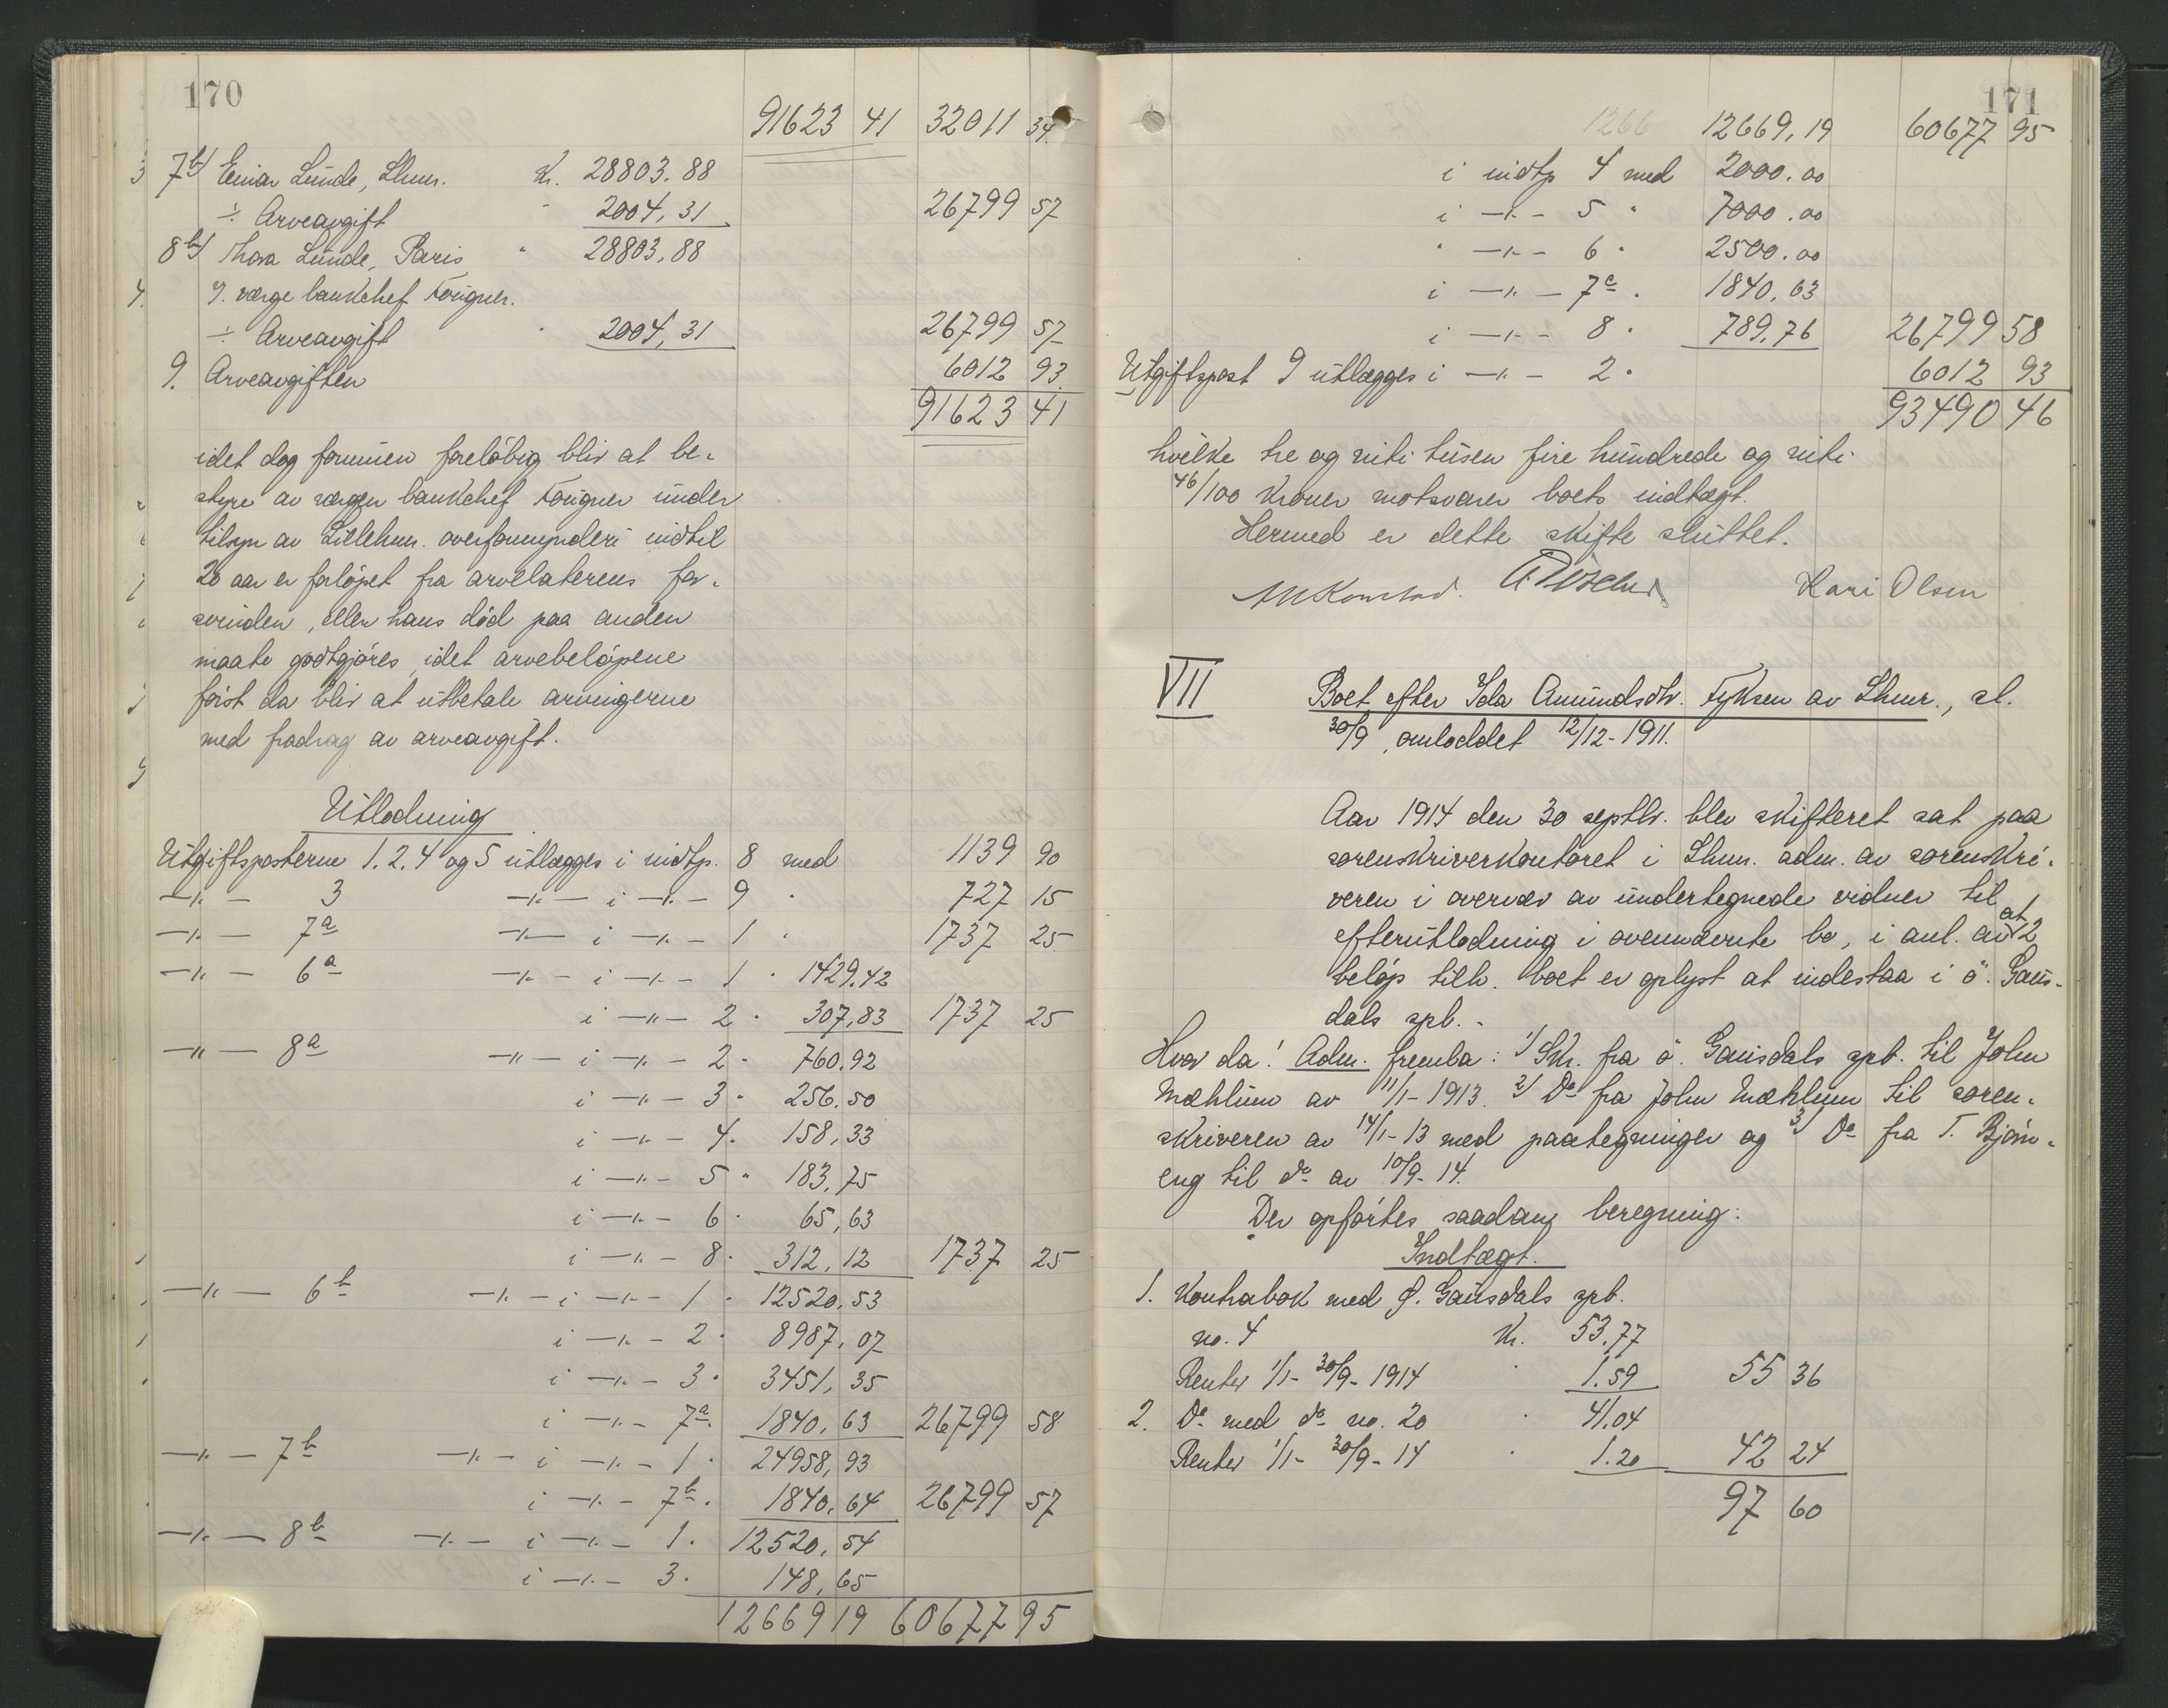 170
91623 41 32011 34
7b) Einar Lunde, Lhmr. Kr. 28803.88
÷ Arveavgift " 2004,31 26799 57
8b) Thora Lunde, Paris " 28803,88
v. værge bankchef Fougner.
÷ Arveavgift " 2004,31 26799 57
9. Arveavgiften 6012 93
91623 41
idet dog formuen foreløbig blir at be-
styre av værgen bankchef Fougner under
tilsyn av Lillehmr. overformynderi indtil
20 aar er forløpet fra arvelaterens for-
svinden, eller hans død paa anden
maate godtgjøres, idet arvebeløpene
først da blir at utbetale arvingerne
med fradrag av arveavgift.
Utlodning
Utgiftsposterne 1.2.4 og 5 utlægges i indtp. 8 med 1139 90
—"— 3 —"— i —"— 9 " 727 15
—"— 7a —"— i —"— 1 " 1737 25
—"— 6a —"— i —"— 1 " 1429.42
i —"— 2 " 307,83 1737 25
—"— 8a —"— i —"— 2 " 760.92
i —"— 3 " 256.50
i —"— 4 " 158,33
i —"— 5 " 183,75
i —"— 6 " 65,63
i —"— 8 " 312,12 1737 25
—"— 6b —"— i —"— 1 " 12520,53
i —"— 2 " 8987,07
i —"— 3 " 3451,35
i —"— 7a " 1840,63 26799 58
—"— 7b —"— i —"— 1 " 24958,93
i —"— 7b " 1840,64 26799 57
—"— 8b —"— i —"— 1 " 12520,54
i —"— 3 " 148,65
12669 19 60677 95
171
1266 12669,19 60677 95
i indtp 4 med 2000.00
i —"— 5 " 7000.00
" —"— 6 " 2500.00
i —"— 7c " 1840,63
i —"— 8 " 789,76 26799 58
Utgiftspost 9 utlægges i —"— 2 " 6012 93
93490 46
hvilke tre og nitti tusen fire hundrede og nitti
46/100 kroner motsvarer boets indtægt.
Hermed er dette skifte sluttet.
Kari Olsen
VII Boet efter Ida Amundsdtr. Fyksen av Lhmr., sl.
30/9, omloddet 12/12-1911.
Aar 1914 den 30 septbr. blev skifteret sat paa
sorenskriverkontoret i Lhmr. adm. av sorenskri-
veren i overvær av undertegnede vidner til
efterutlodning i ovennævnte bo, i anl. av at 2
beløp tilh. boet er oplyst at indestaa i ö. Gaus-
dals spb. -
Hvor da! Adm. fremla: 1) Skr. fra ö. Gausdals spb. til John
Mæhlum av 11/1-1913. 2) Do fra John Mæhlum til soren-
skriveren av 14/1-13 med paategninger og 3) Do fra T. Bjørn-
eng til do av 10/9-14.
Der opførtes saadan beregning:
Indtægt.
1. Kontrabok med Ø. Gausdals spb.
no. 4 Kr. 53.77
Renter 1/1-30/9-1914 " 1.59 55 36
2. Do med do no. 20 " 41.04
Renter 1/1-30/9-14 " 1.20 42 24
97 60